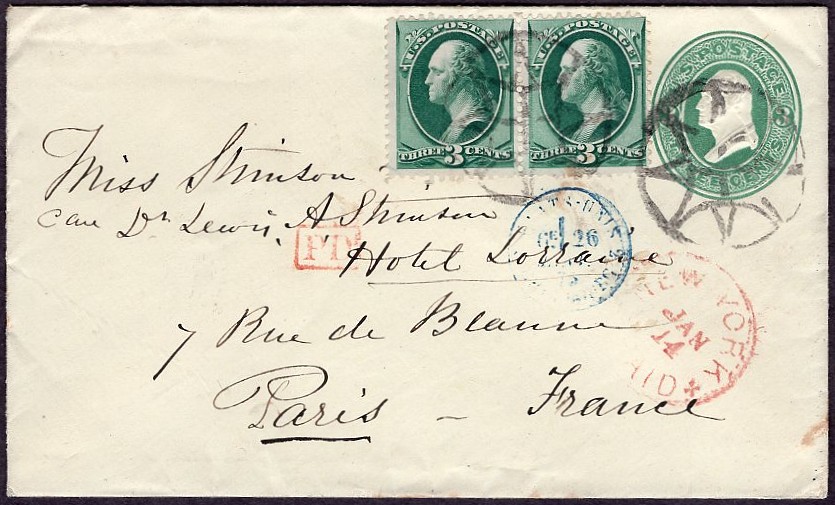 U.S. POSTAGE
THREE 3 CENTS
U.S. POSTAGE
THREE 3 CENTS
3
Miss Stimson
Care Dr Lewis A Stimson
Hotel Lorraine
PD
26
NEW YORK
JAN
14
PAID
7 Rue de Beaune
Paris - France